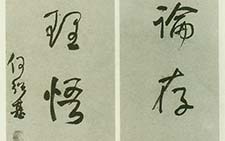 論存
理悟
何紹基